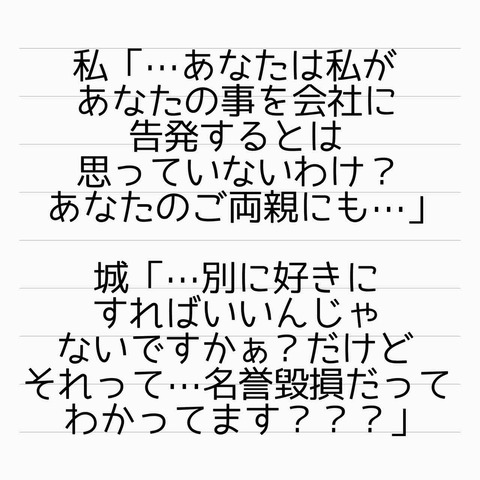 私「…あなたは私が
あなたの事を会社に
告発するとは
思っていないわけ？
あなたのご両親にも…」
城「…別に好きに
すればいいんじゃ
ないですかぁ？だけど
それって…名誉毀損だって
わかってます？？？」